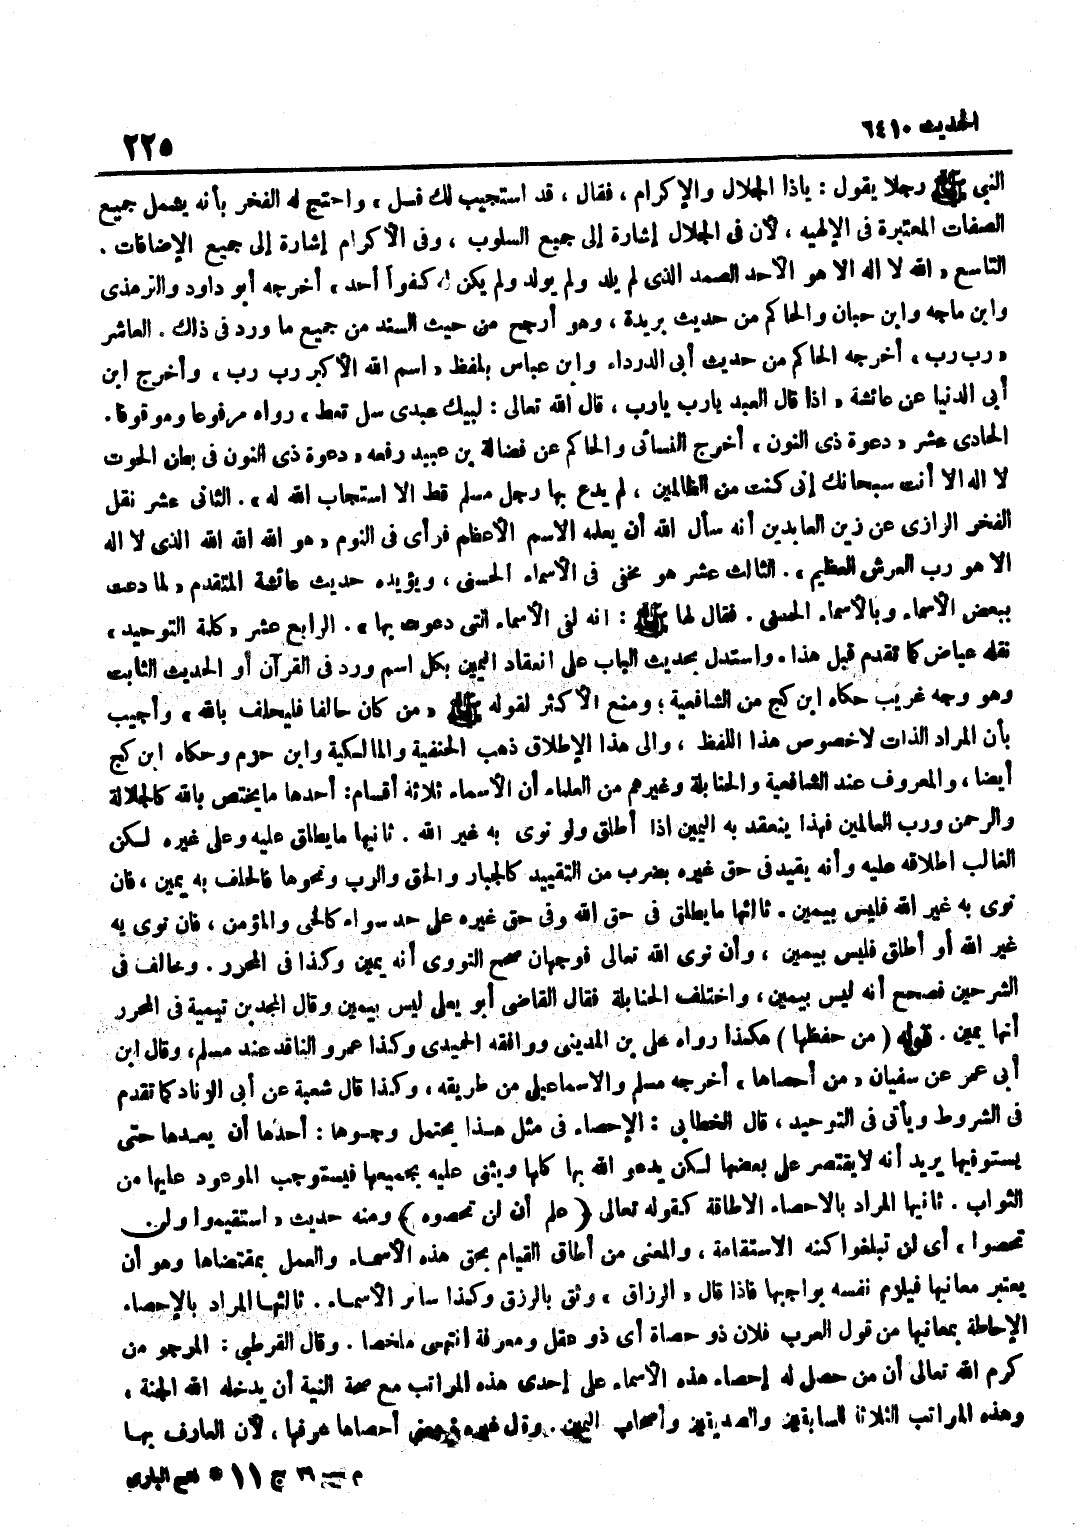 الحديث ٦٤١٠
٢٢٥
النبي ﷺ رجلا يقول : ياذا الجلال والإكرام ، فقال ، قد استجيب لك فسل ، واحتج له الفخر بأنه يشمل جميع
الصفات المعتبرة فى الإلهيه ، لأن فى الجلال إشارة إلى جميع السلوب ، وفى الأكرام إشارة إلى جميع الإضافات .
التاسع « الله لا اله الا هو الأحد الصمد الذى لم يلد ولم يولد ولم يكن له كفوآ أحد ، أخرجه أبو داود والترمذى
وابن ماجه وابن حبان والحاكم من حديث بريدة ، وهو أرجح من حيث السند من جميع ما ورد فى ذلك . العاشر
« رب رب ، أخرجه الحاكم من حديث أبى الدرداء وابن عباس بلفظ « اسم الله الأكبر رب رب ، وأخرج ابن
أبى الدنيا عن عائشة « اذا قال العبد يارب يارب ، قال الله تعالى : لبيك عبدى سل تعط ، رواه مرفوعا وموقوفا .
الحادى عشر « دعوة ذى النون ، أخرج النسائى والحاكم عن فضالة بن عبيد رفعه « دعوة ذى النون فى بطن الحوت
لا اله الا أنت سبحانك إنى كنت من الظالمين ، لم يدع بها رجل مسلم قط الا استجاب الله له » . الثانى عشر نقل
الفخر الرازى عن زين العابدين أنه سأل الله أن يعلمه الاسم الأعظم فرأى فى النوم « هو الله الله الله الذى لا اله
الا هو رب العرش العظيم ، . الثالث عشر هو مخفى فى الأسماء الحسنى ، ويؤيده حديث عائشة المتقدم « لما دعت
ببعض الأسماء وبالأسماء الحسنى . فقال لها ﷺ : انه لفى الأسماء التى دعوت بها » . الرابع عشر « كلمة التوحيد »
نقله عياض كما تقدم قبل هذا . واستدل بحديث الباب على انعقاد اليمين بكل اسم ورد فى القرآن أو الحديث الثابت
وهو وجه غريب حكاه ابن كج من الشافعية ؛ ومنع الأكثر لقوله ﷺ « من كان حالفا فليحلف بالله » وأجيب
بأن المراد الذات لاخصوص هذا اللفظ ، والى هذا الإطلاق ذهب الحنفية والمالكية وابن حزم وحكاه ابن كج
أيضا ، والمعروف عند الشافعية والحنابلة وغيرهم من العلماء أن الأسماء ثلاثة أقسام : أحدها مايختص بالله كالجلالة
والرحمن ورب العالمين فهذا ينعقد به اليمين اذا أطلق ولو نوى به غير الله . ثانيها مايطلق عليه وعلى غيره لكن
الغالب اطلاقه عليه وأنه يقيد فى حق غيره بضرب من التقييد كالجبار والحق والرب ونحوها فالحلف به يمين ، فان
نوى به غير الله فليس بيمين . ثالثها مايطلق فى حق الله وفى حق غيره على حد سواء كالحى والمؤمن ، فان نوى به
غير الله أو أطلق فليس بيمين ، وأن نوى الله تعالى فوجهان صحح النووى أنه يمين وكذا فى المحرر . وخالف فى
الشرحين فصحح أنه ليس بيمين ، واختلف الحنابلة فقال القاضى أبو يعلى ليس بيمين وقال المجد بن تيمية فى المحرر
أنها يمين . قوله ( من حفظها ) هكذا رواه على بن المدينى ووافقه الحميدى وكذا عمرو الناقد عند مسلم ، وقال ابن
أبى عمر عن سفيان « من أحصاها ، أخرجه مسلم والاسماعيلى من طريقه ، وكذا قال شعبة عن أبى الزناد كما تقدم
فى الشروط ويأتى فى التوحيد ، قال الخطابى : الإحصاء فى مثل هذا يحتمل وجوها : أحدها أن يعدها حتى
يستوفيها يريد أنه لايقتصر على بعضها لكن يدعو الله بها كلها ويثنى عليه بجميعها فيستوجب الموعود عليها من
الثواب . ثانيها المراد بالاحصاء الاطاقة كقوله تعالى ﴿ علم أن لن تحصوه ﴾ ومنه حديث « استقيموا ولن
تحصوا ، أى لن تبلغوا كنه الاستقامة ، والمعنى من أطاق القيام بحق هذه الأسماء والعمل بمقتضاها وهو أن
يعتبر معانيها فيلزم نفسه بواجبها فاذا قال « الرزاق ، وثق بالرزق وكذا سائر الأسماء . ثالثها المراد بالإحصاء
الإحاطة بمعانيها من قول العرب فلان ذو حصاة أى ذو عقل ومعرفة انتهى ملخصا . وقال القرطبى : المرجو من
كرم الله تعالى أن من حصل له إحصاء هذه الأسماء على إحدى هذه المراتب مع صحة النية أن يدخله الله الجنة ،
وهذه المراتب الثلاثة للسابقين والصديقين وأصحاب اليمين . وقال غيره معنى أحصاها عرفها ، لأن العارف بها
م – ٢٩ ج ١١ * فتح البارى